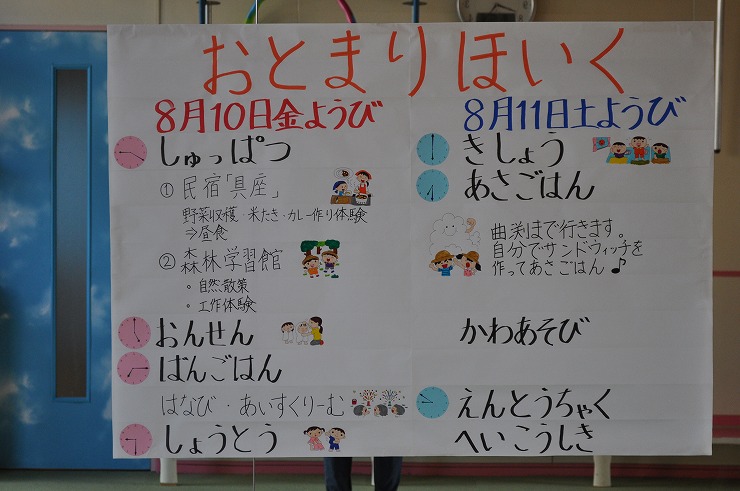 おとまりほいく
8月10日金ようび
しゅっぱつ
① 民宿「具座」
野菜収穫・米たき・カレー作り体験
⇒昼食
② 森林学習館
・自然散策
・工作体験
おんせん
ばんごはん
はなび・あいすくりーむ
しょうとう
8月11日土ようび
きしょう
あさごはん
曲渕まで行きます。
自分でサンドウィッチを
作ってあさごはん♪
かわあそび
えんとうちゃく
へいこうしき